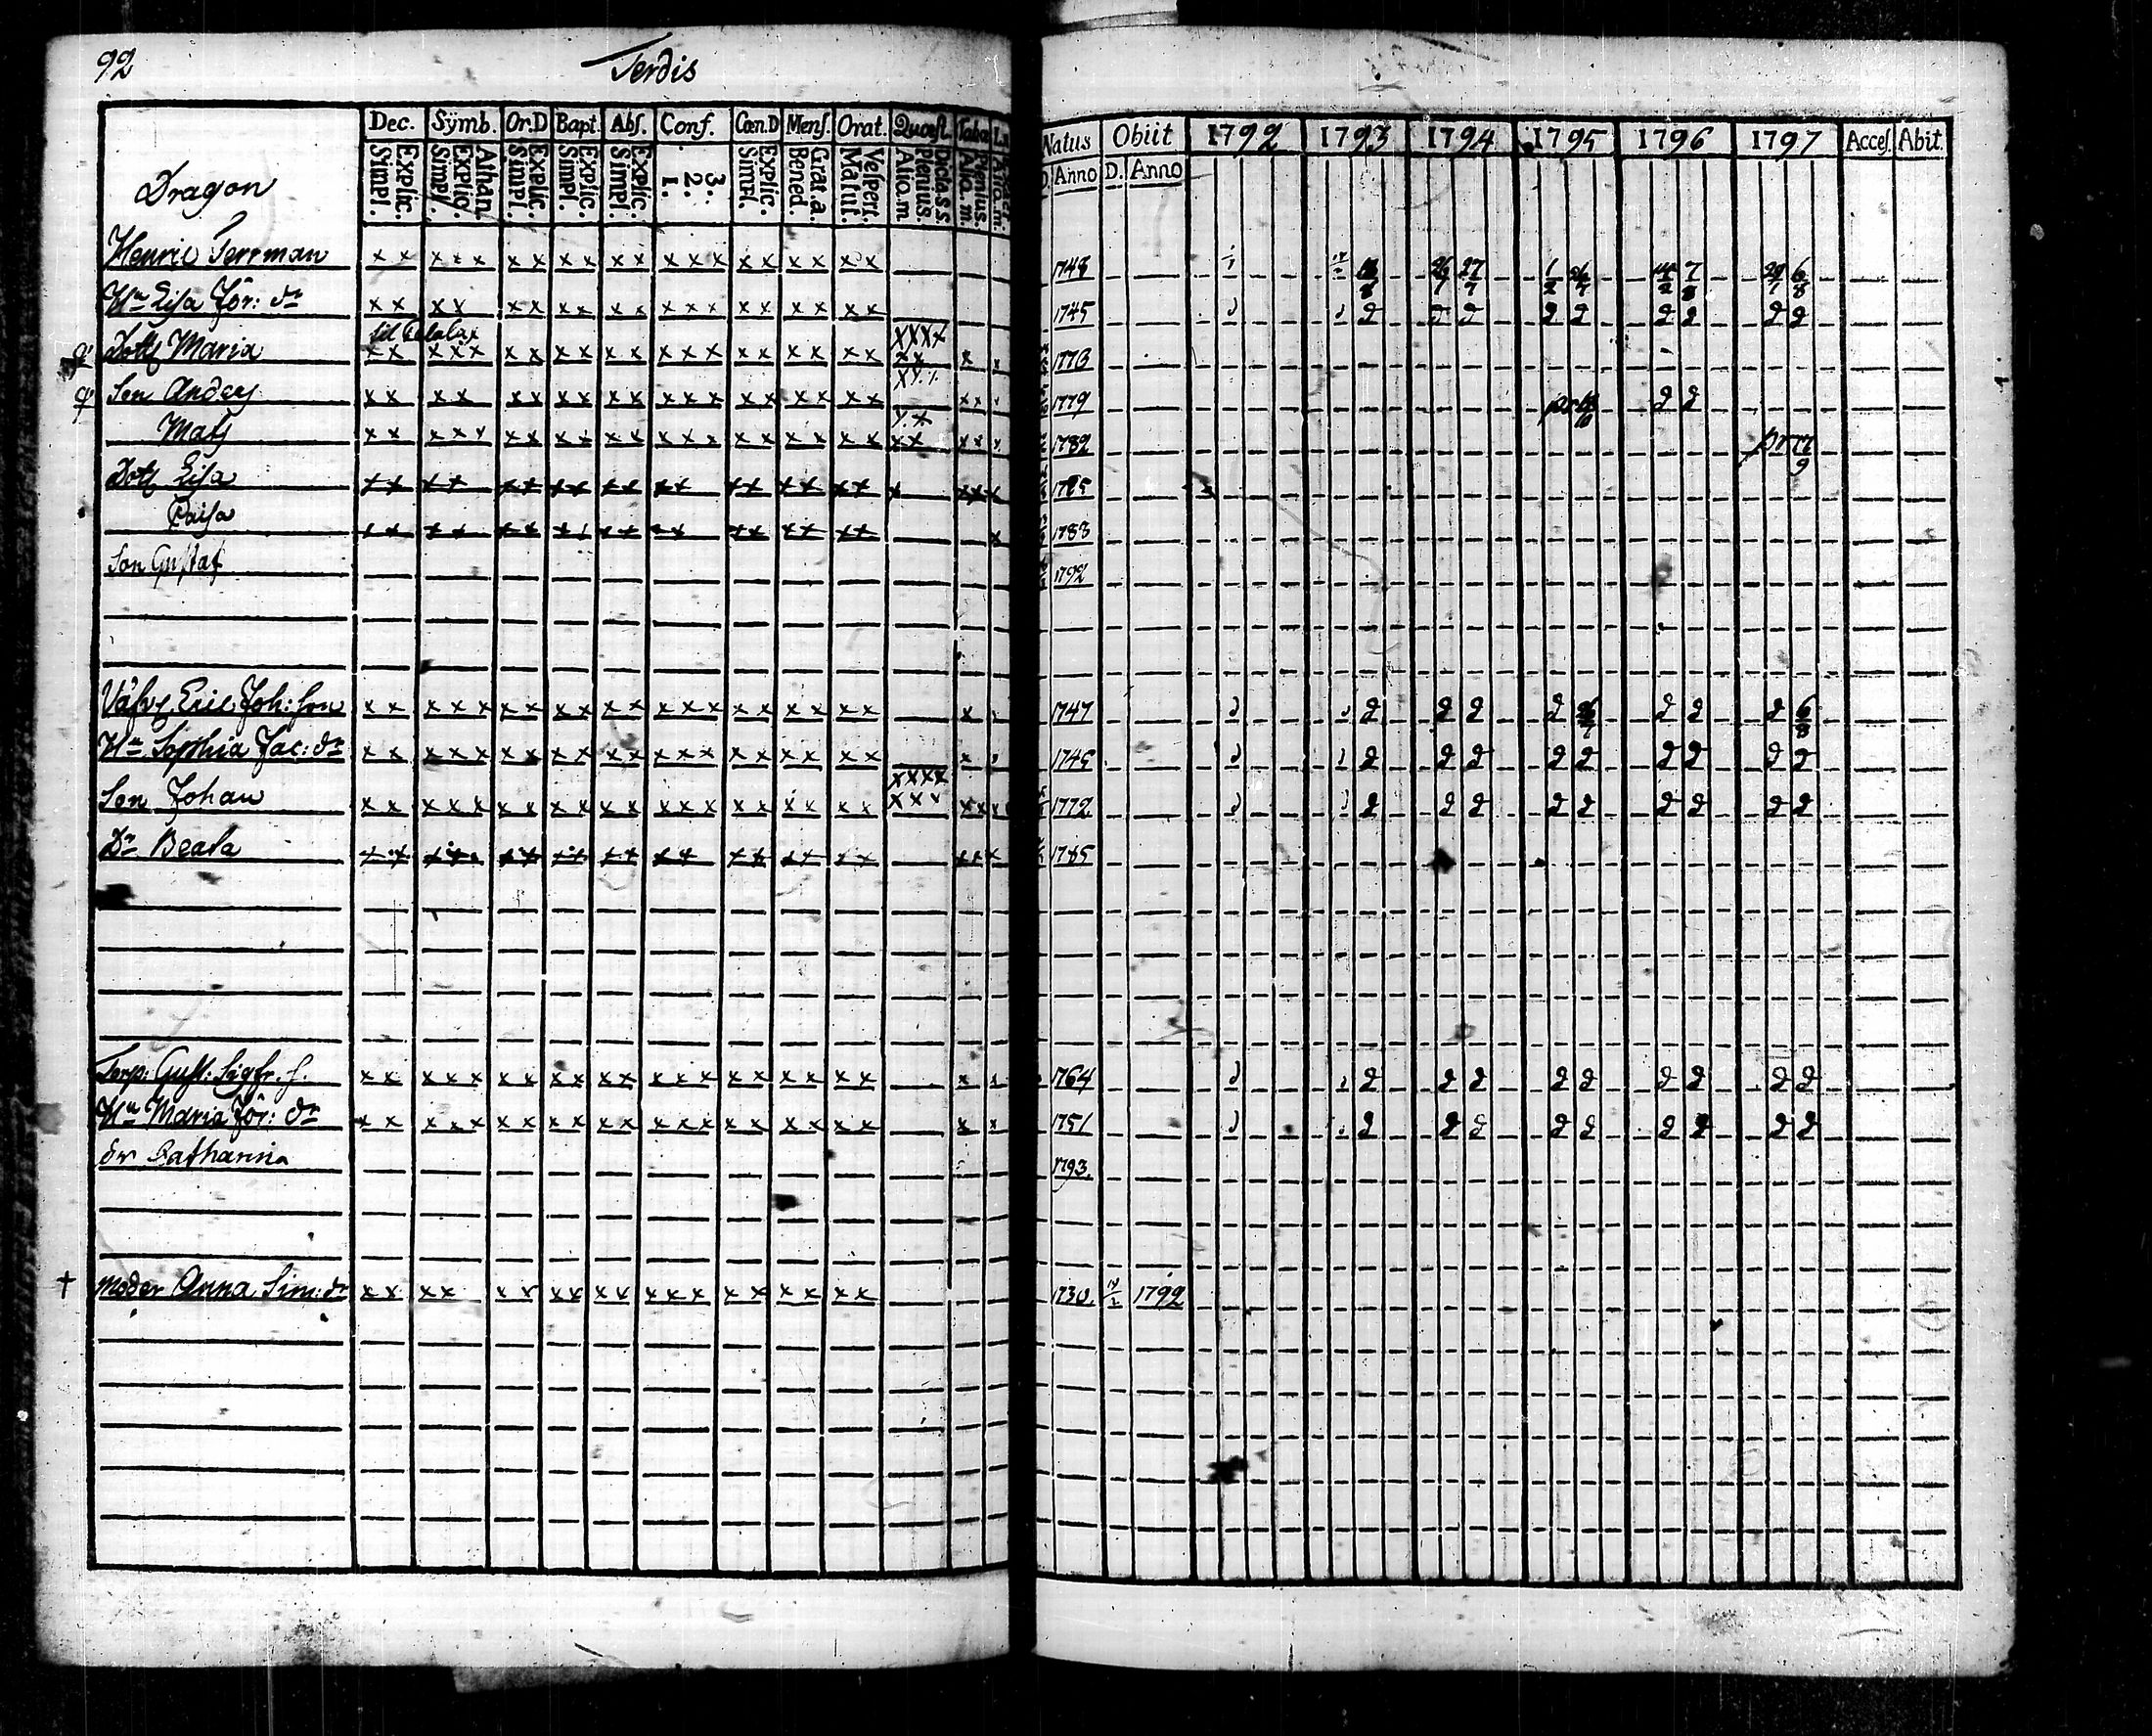 92
Terdis
Dec. Sÿmb. Or.D Bapt. Abſ. Conf. Cœn.D Menſ. Orat. Quæſt. Natus Obiit 1792 1793 1794 1795 1796 1797 Acceſ. Abit.
Explic. Simpl. Athan. Explic. Simpl. Explic. Simpl. Explic. Simpl. Explic. Simpl. 3. 2. 1. Explic. Simpl. Grat.a. Bened. Veſpert. Matut. Dicta.s.s. Plenius. Aliq.m. Plenius. Aliq.m. D. Anno D. Anno
Dragon
Henric Terrman x x x x x x x x x x x x x x x x x x x x 1748
Hu Lisa Jör: dr x x x x x x x x x x x x x x x x x x x 1745 2 2 2 2 2 2 2 2
Dottr Maria x x x x x x x x x x x x x x x x x x x x 1773
Son Anders x x x x x x x x x x x x x x x x x x x 1779 2 2
Mats x x x x x x x x x x x x x x x x x x x x 1782
Dottr Lisa x x x x x x x x x x x x x x x x x x
Caisa x x x x x x x x x x x x x x x x x x 1783
Son Gustaf 1792
Eric Joh: son x x x x x x x x x x x x x x x x x x x x 1747 2 2 2 2 2 2 2
Hu Sophia Jac: dr x x x x x x x x x x x x x x x x x x x x 2 2 2 2 2 2 2 2 2
Son Johan x x x x x x x x x x x x x x x x x x x x 1772 2 2 2 2 2 2 2 2 2
Dr Beata 1785
Torp: Gust: Sigfr. s. x x x x x x x x x x x x x x x x x x x x 1764 2 2 2 2 2 2 2 2 2
Hu Maria Jör: dr x x x x x x x x x x x x x x x x x x x x 1751 2 2 2 2 2 2 2 2 2
dr Catharina 1793.
† moder Anna Sim: dr x x x x x x x x x x x x x x x x x x x 1730. 1792